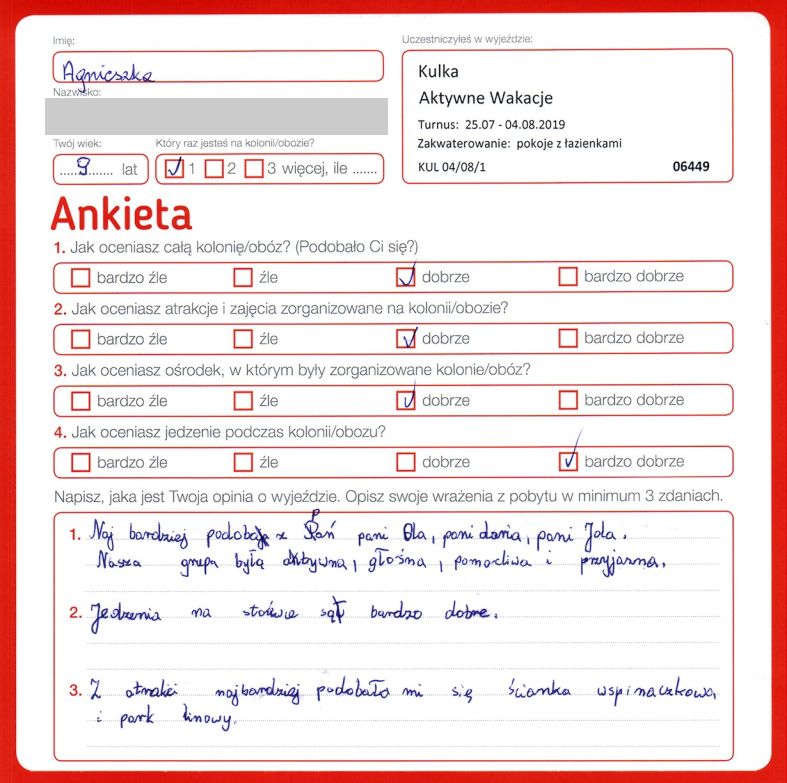 Imię:
Agnieszka
Nazwisko:
Uczestniczyłeś w wyjeździe:
Kulka
Aktywne Wakacje
Turnus: 25.07 - 04.08.2019
Zakwaterowanie: pokoje z łazienkami
KUL 04/08/1 06449
Twój wiek:
.....9....... lat
Który raz jesteś na kolonii/obozie?
1 2 3 więcej, ile .......
Ankieta
1. Jak oceniasz całą kolonię/obóz? (Podobało Ci się?)
bardzo źle źle dobrze bardzo dobrze
2. Jak oceniasz atrakcje i zajęcia zorganizowane na kolonii/obozie?
bardzo źle źle dobrze bardzo dobrze
3. Jak oceniasz ośrodek, w którym były zorganizowane kolonie/obóz?
bardzo źle źle dobrze bardzo dobrze
4. Jak oceniasz jedzenie podczas kolonii/obozu?
bardzo źle źle dobrze bardzo dobrze
Napisz, jaka jest Twoja opinia o wyjeździe. Opisz swoje wrażenia z pobytu w minimum 3 zdaniach.
1. Naj bardziej z Pań pani Ola, pani pani Jola.
Nasza grupa była głośna, i przyjazna.
2. Jedzenia na są bardzo dobre.
3. Z najbardziej podobało mi się ścianka wspinaczkowa
i park linowy.